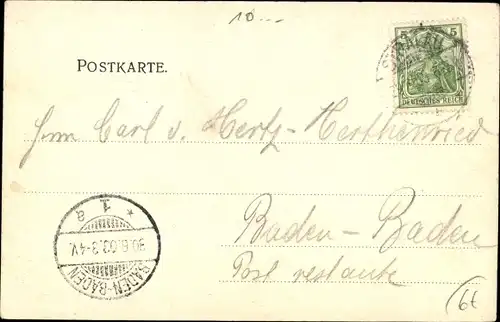 10.--
POSTKARTE.
5 5
DEUTSCHES REICH
Herrn Carl v. Hertz-Herthenried
Baden-Baden
Post restante
* 1 a
30.6.03.3-4V.
BADEN-BADEN
(6t